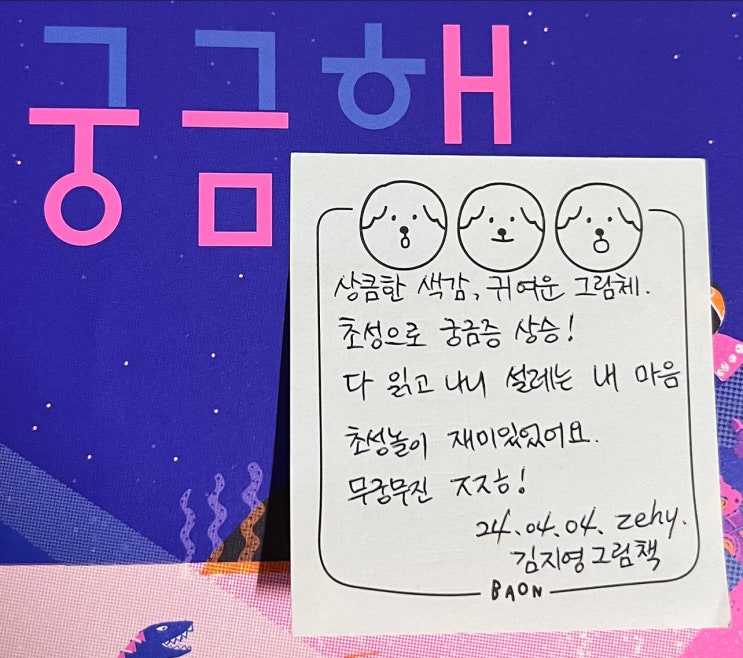 궁금해
상큼한 색감, 귀여운 그림체.
초성으로 궁금증 상승!
다 읽고 나니 설레는 내 마음
초성놀이 재미있었어요.
무궁무진 ㅈㅈㅎ!
24.04.04. zehy.
김지영그림책
BAON